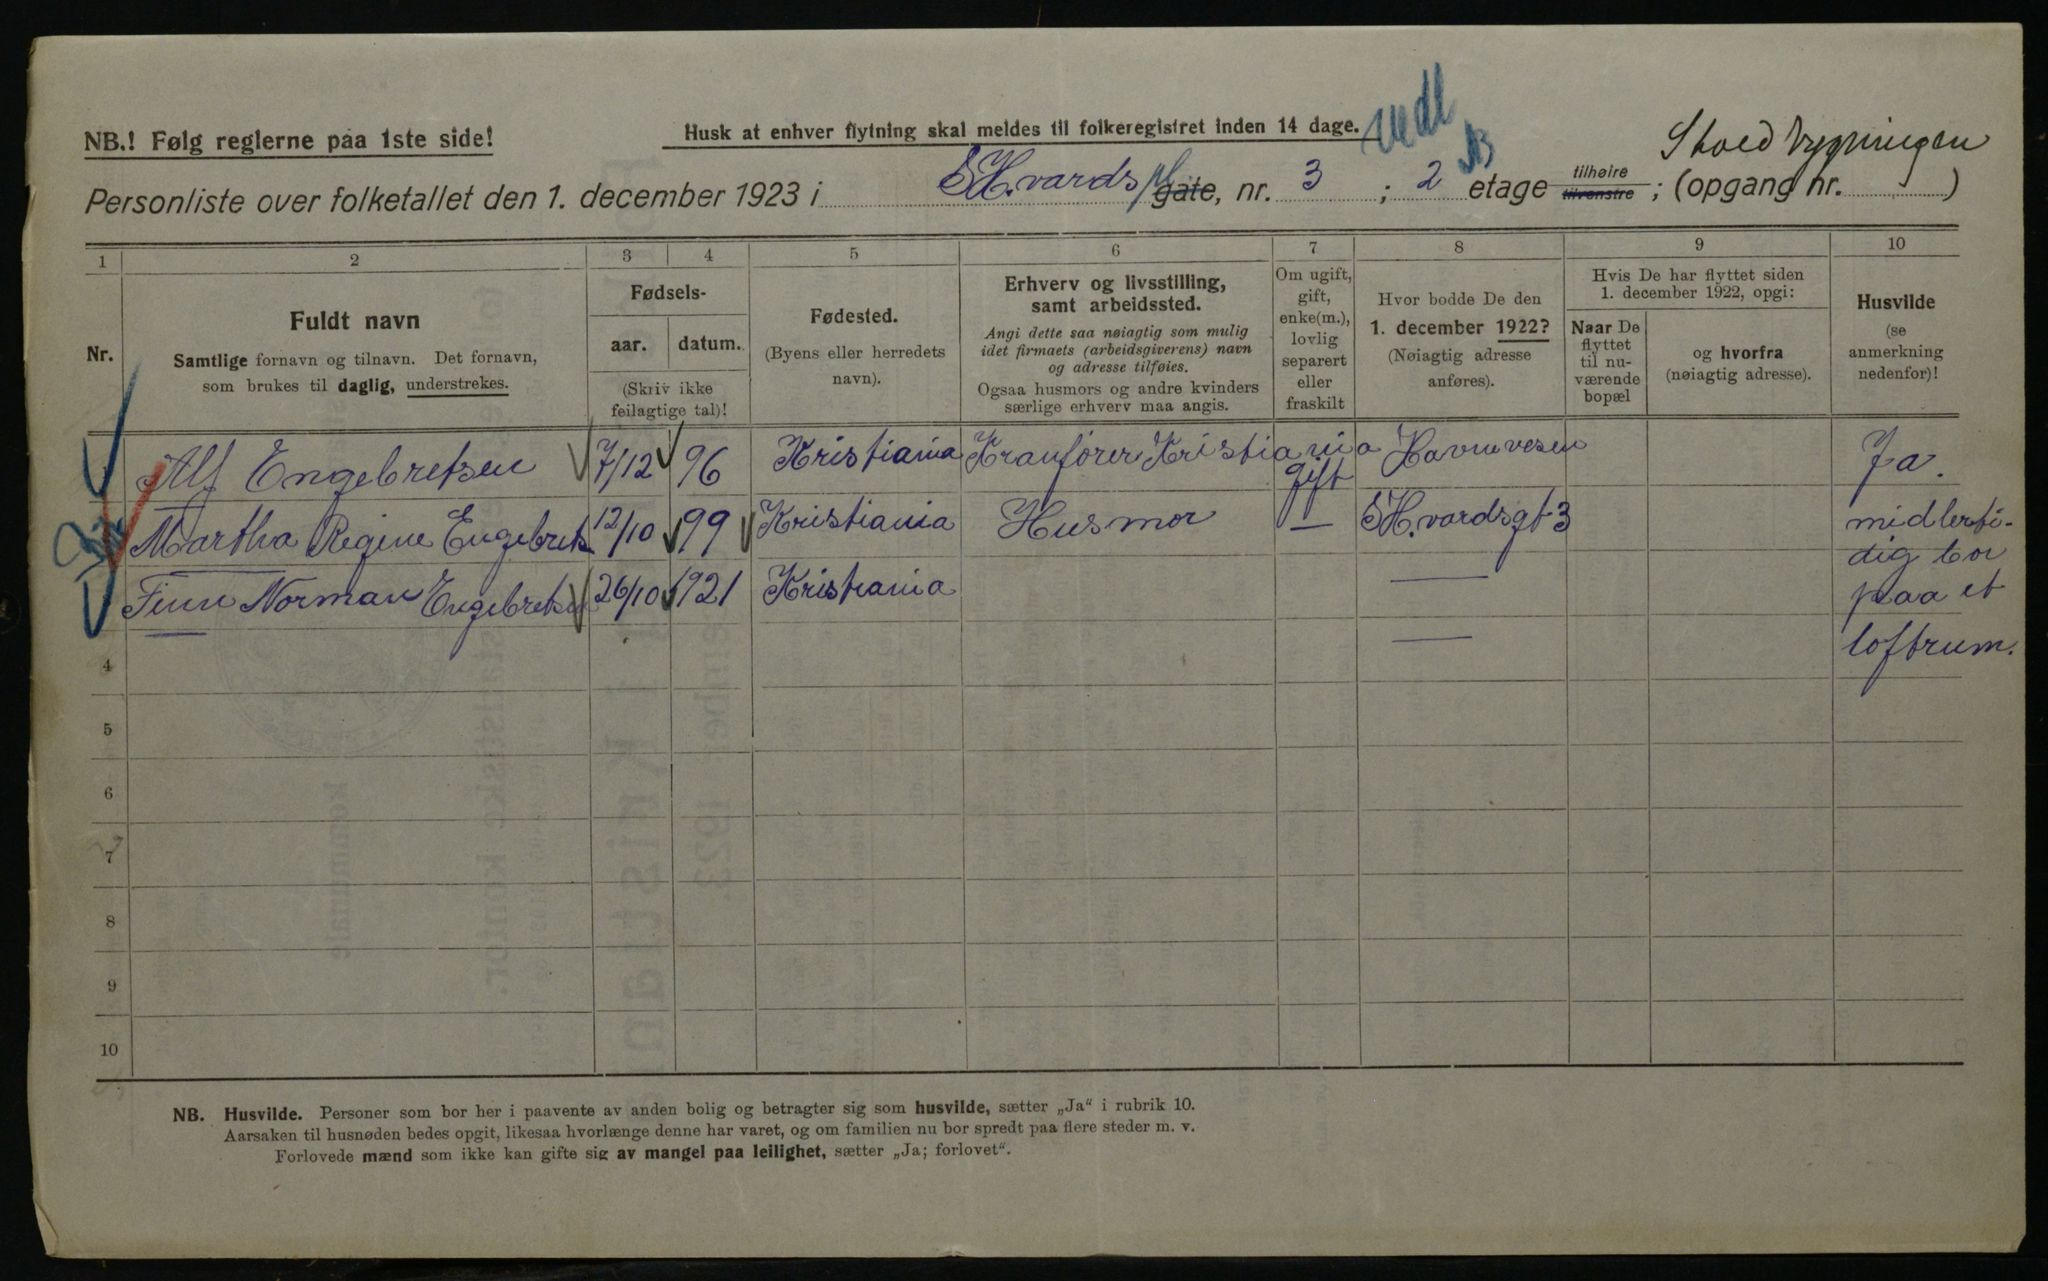 NB.! Følg reglerne paa 1ste side!
Husk at enhver flytning skal meldes til folkeregistret inden 14 dage.
Personliste over folketallet den 1. december 1923 i S H.vards pl gate, nr. 3 ; 2 etage tilhøire tilvenstre ; (opgang nr. )
1 2 3 4 5 6 7 8 9 10
Nr.
Fuldt navn
Samtlige fornavn og tilnavn. Det fornavn,
som brukes til daglig, understrekes.
Fødsels-
aar. datum.
(Skriv ikke
feilagtige tal)!
Fødested.
(Byens eller herredets
navn).
Erhverv og livsstilling,
samt arbeidssted.
Angi dette saa nøiagtig som mulig
idet firmaets (arbeidsgiverens) navn
og adresse tilføies.
Ogsaa husmors og andre kvinders
særlige erhverv maa angis.
Om ugift,
gift,
enke(m.),
lovlig
separert
eller
fraskilt
Hvor bodde De den
1. december 1922?
(Nøiagtig adresse
anføres).
Hvis De har flyttet siden
1. december 1922, opgi:
Naar De
flyttet
til nu-
værende
bopæl
og hvorfra
(nøiagtig adresse).
Husvilde
(se
anmerkning
nedenfor)!
Alf Engebretsen 7/12 96 Kristiania Kranfører Kristiania Havnevesen gift Ja.
Martha Regine Engebrets 12/10 99 Kristiania Husmor — S H.vardsgt 3 midlerti-
dig bor
Finn Norman Engebretsen 26/10 1921 Kristiania — paa et
— loftrum.
4
5
6
7
8
9
10
NB. Husvilde. Personer som bor her i paavente av anden bolig og betragter sig som husvilde, sætter „Ja“ i rubrik 10.
Aarsaken til husnøden bedes opgit, likesaa hvorlænge denne har varet, og om familien nu bor spredt paa flere steder m. v.
Forlovede mænd som ikke kan gifte sig av mangel paa leilighet, sætter „Ja; forlovet“.